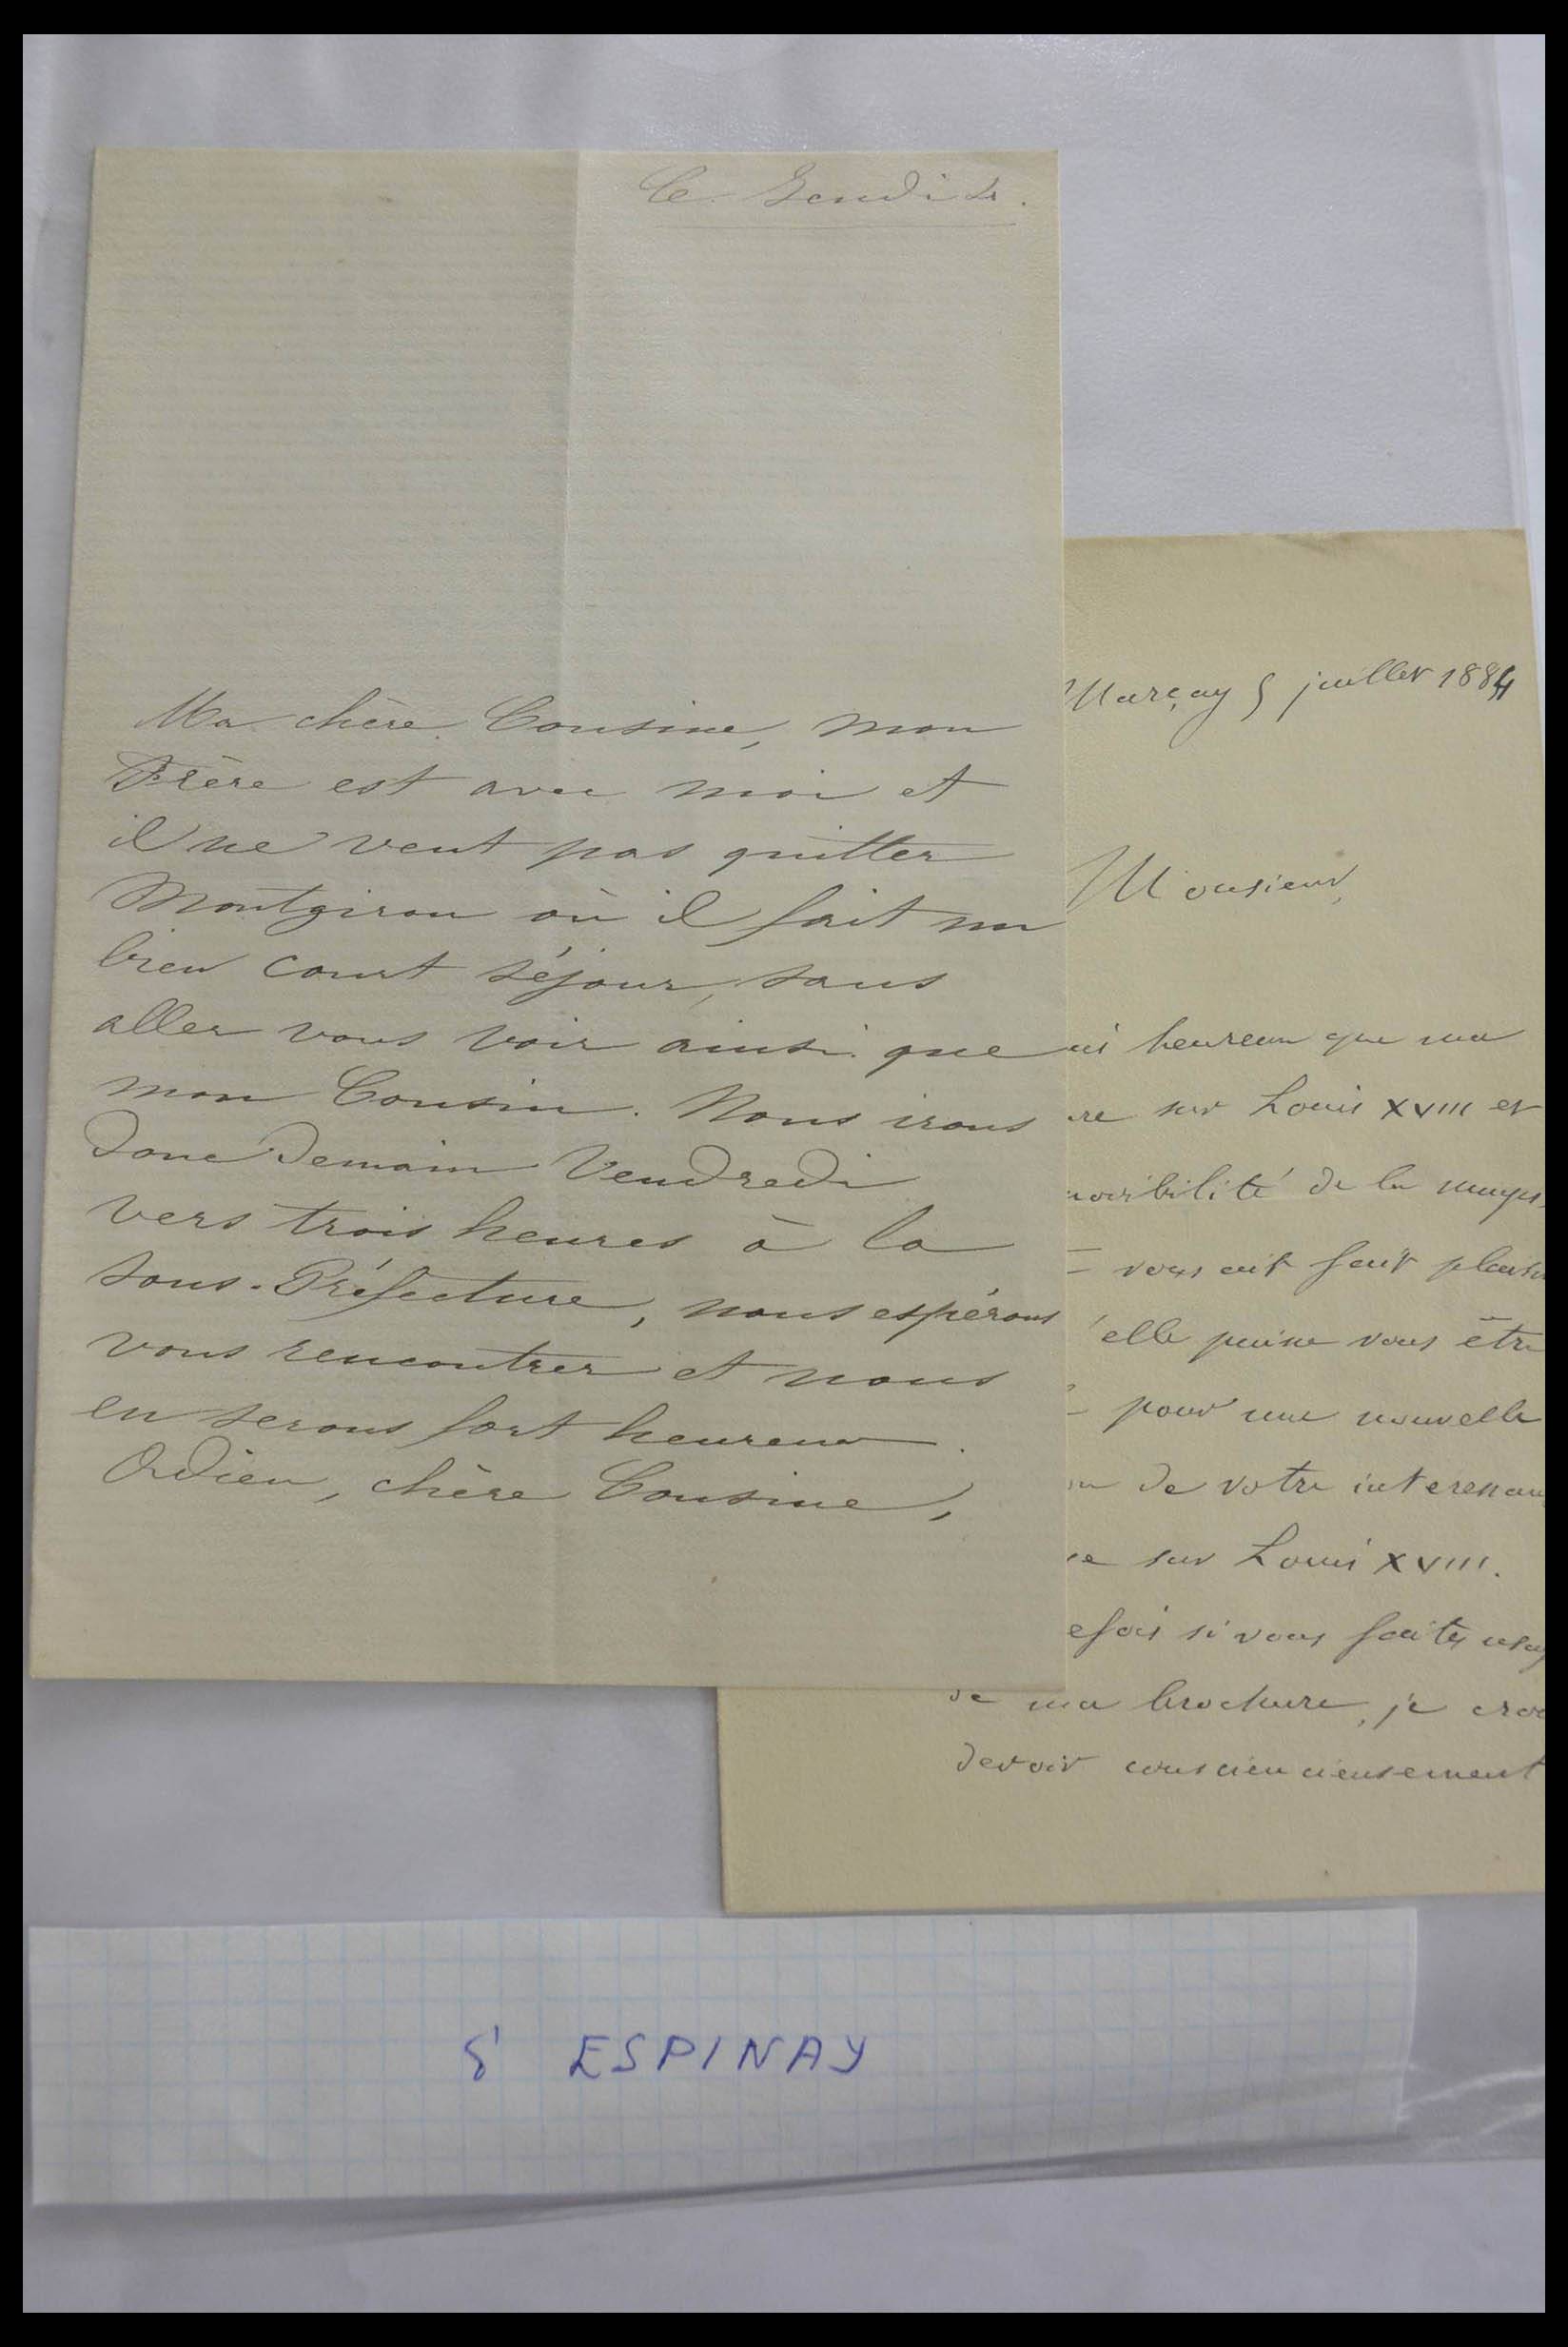 Ce Jeudi 4.
Ma chère Cousine, mon
Frère est avec moi et
il ne veut pas quitter
Montgiron où il fait un
bien court séjour, sans
aller vous voir ainsi que
mon Cousin. Nous irons
donc demain Vendredi
vers trois heures à la
sous-Préfecture, nous espérons
vous rencontrer et nous
en serons fort heureux.
Adieu, chère Cousine,
Marçay 5 juillet 1884
Monsieur,
heureux que ma
re sur Louis XVIII et
de la
vous ait fait plaisi
elle puisse vous être
pour une nouvelle
de votre interessan
sur Louis XVIII.
efois si vous faites usag
de ma brochure, je croi
devoir consciencieusement
d' ESPINAY